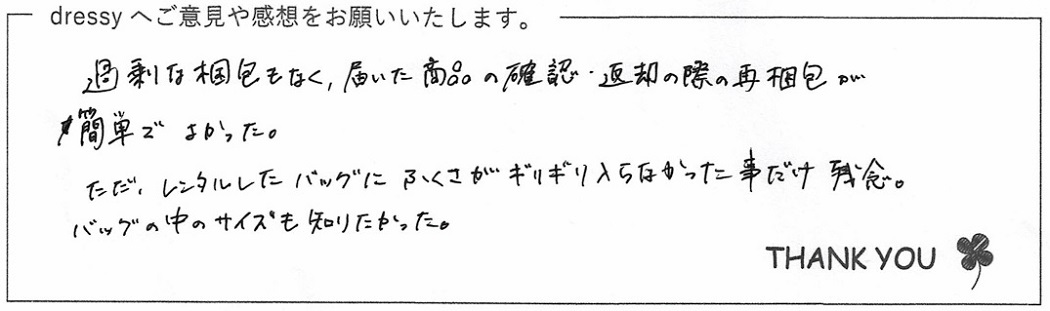 dressy へご意見や感想をお願いいたします。
過剰な梱包もなく、届いた商品の確認・返却の際の再梱包が
簡単でよかった。
ただ、レンタルしたバッグにふくさがギリギリ入らなかった事だけ残念。
バッグの中のサイズも知りたかった。
THANK YOU